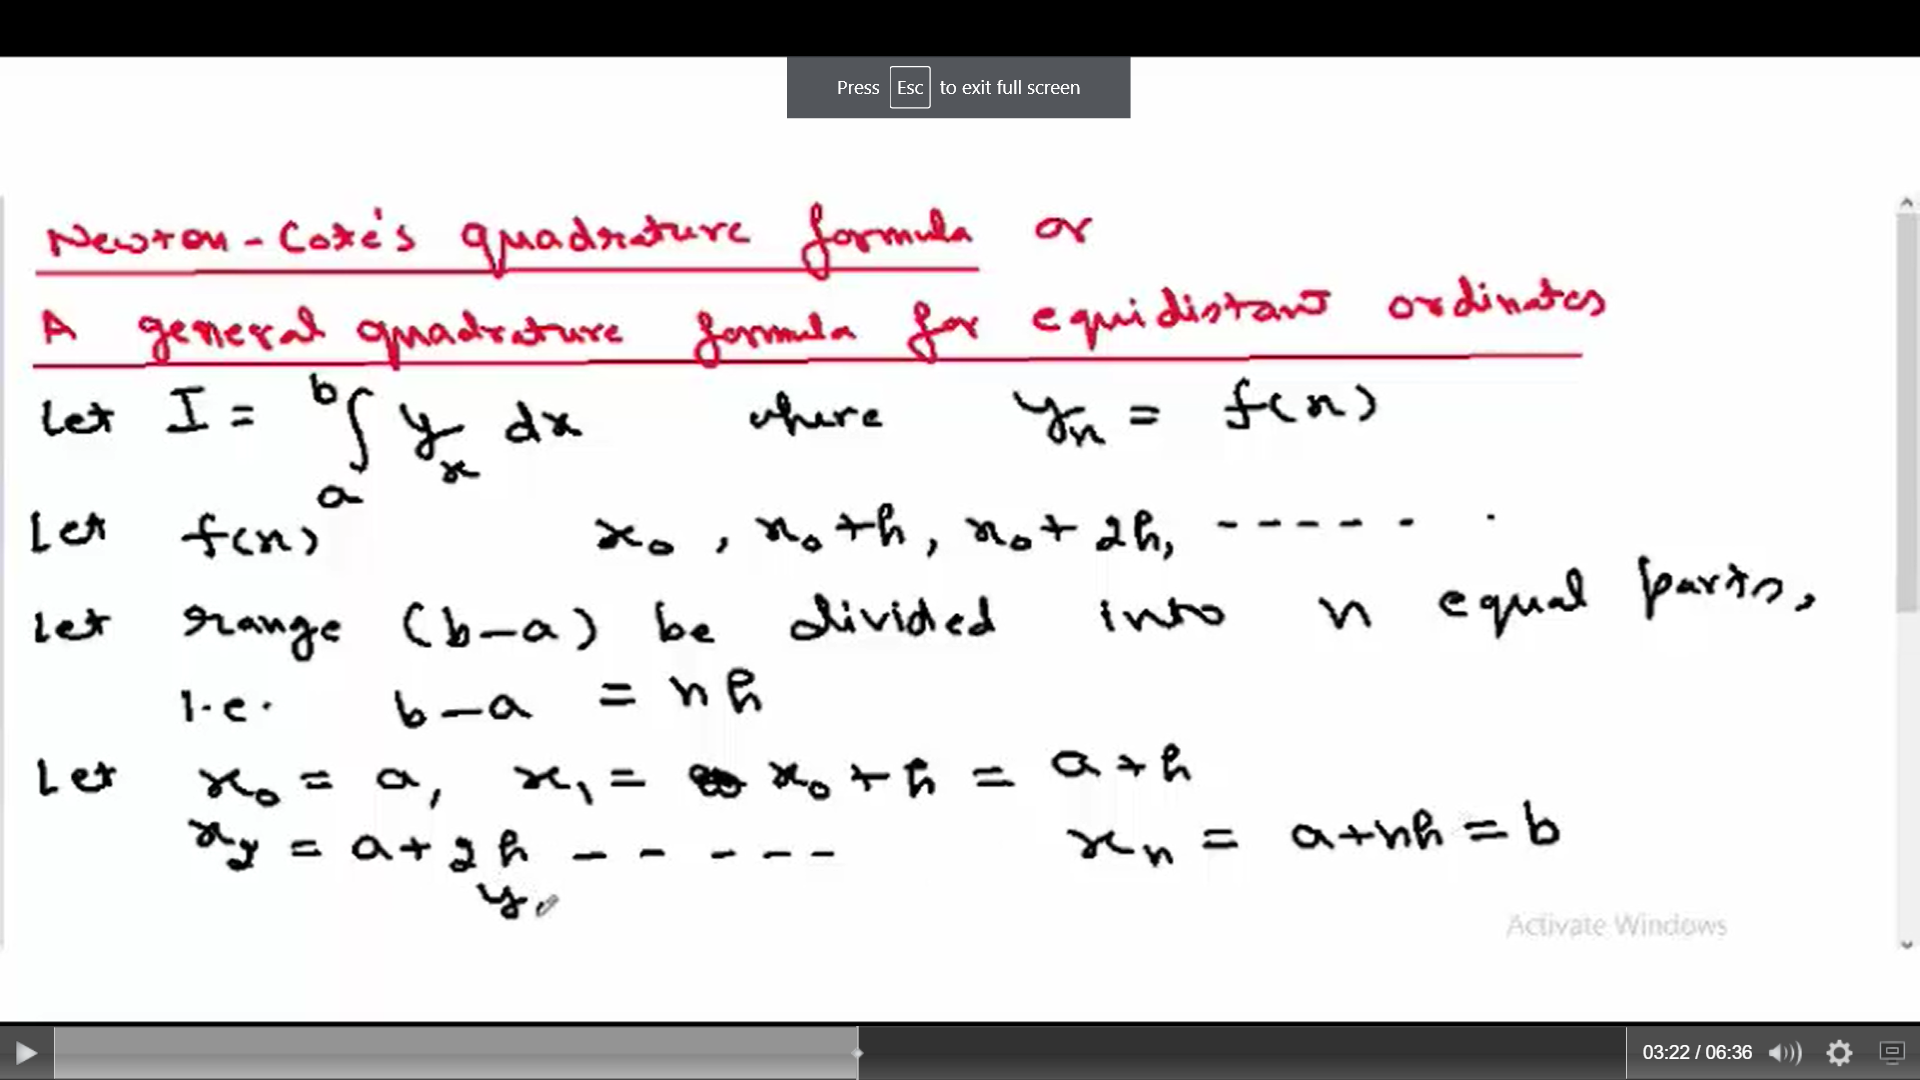 Press Esc to exit full screen
Newton-Cote's quadrature formula or
A general quadrature formula for equidistant ordinates
Let I = ∫ₐᵇ yₓ dx where yₓ = f(x)
Let f(x) x₀, x₀+h, x₀+2h, ------ .
Let range (b-a) be divided into n equal parts,
i.e. b-a = nh
Let x₀ = a, x₁ = x₀+h = a+h
x₂ = a+2h ----- xₙ = a+nh = b
y
Activate Windows
03:22 / 06:36